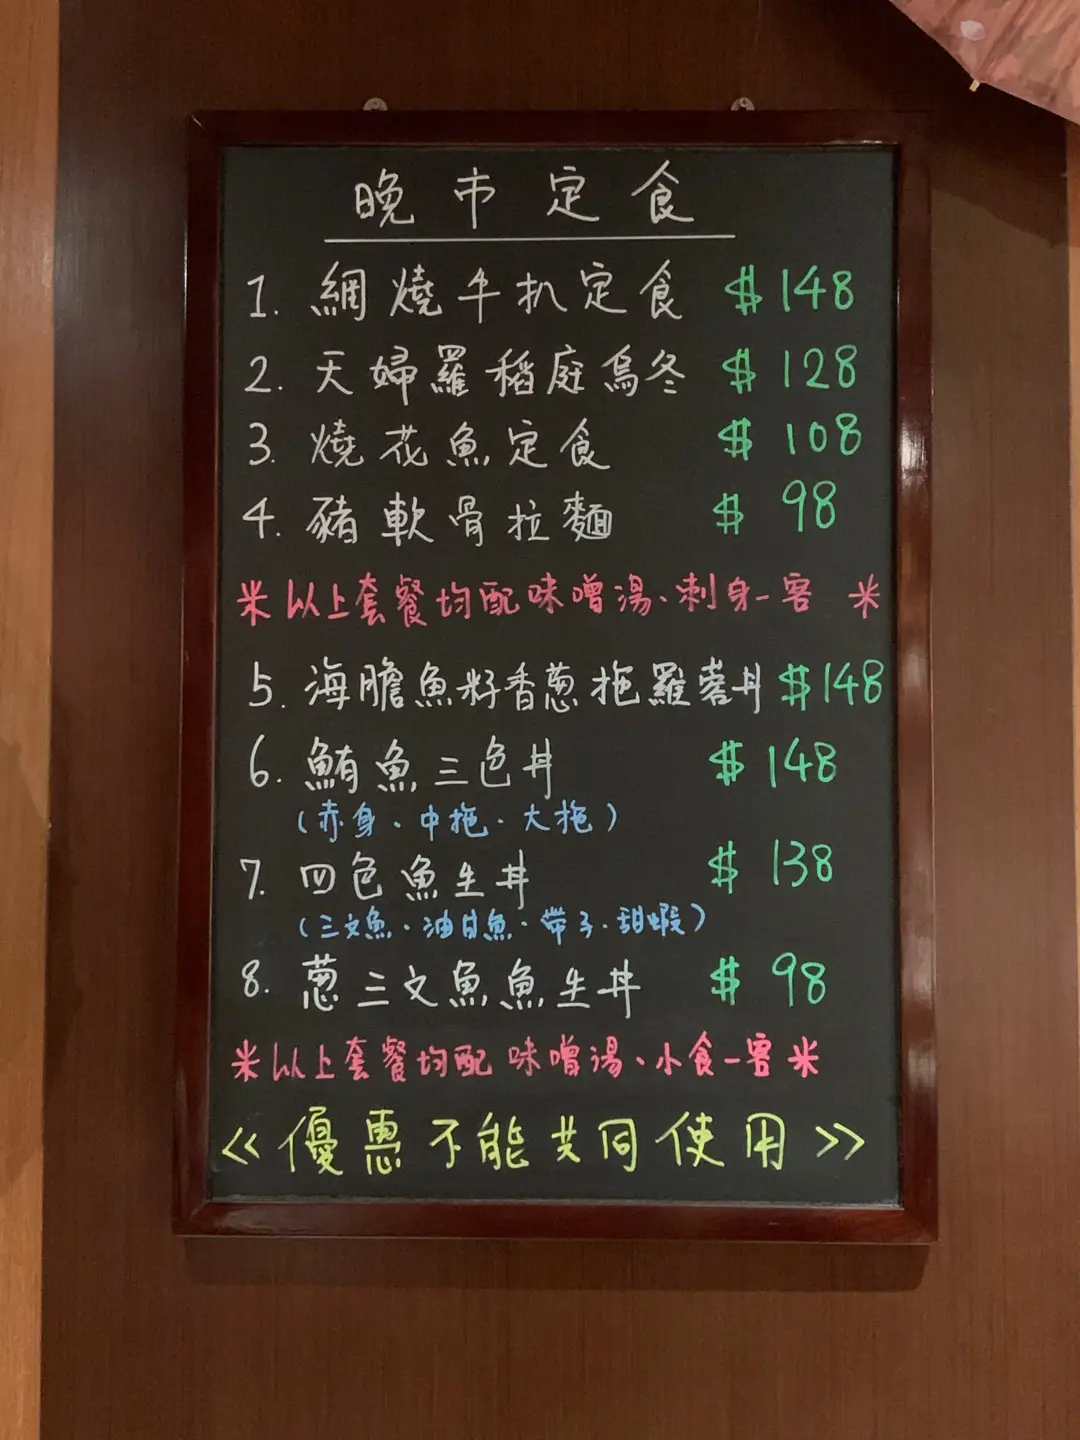 晚市定食
1. 網燒牛扒定食 $148
2. 天婦羅稻庭烏冬 $128
3. 燒花魚定食 $108
4. 豬軟骨拉麵 $98
※以上套餐均配味噌湯、刺身一客※
5. 海膽魚籽香蔥拖羅蓉丼 $148
6. 鮪魚三色丼 $148
(赤身.中拖.大拖)
7. 四色魚生丼 $138
(三文魚.油甘魚.帶子.甜蝦)
8. 蔥三文魚魚生丼 $98
※以上套餐均配味噌湯、小食一客※
<<優惠不能共同使用>>